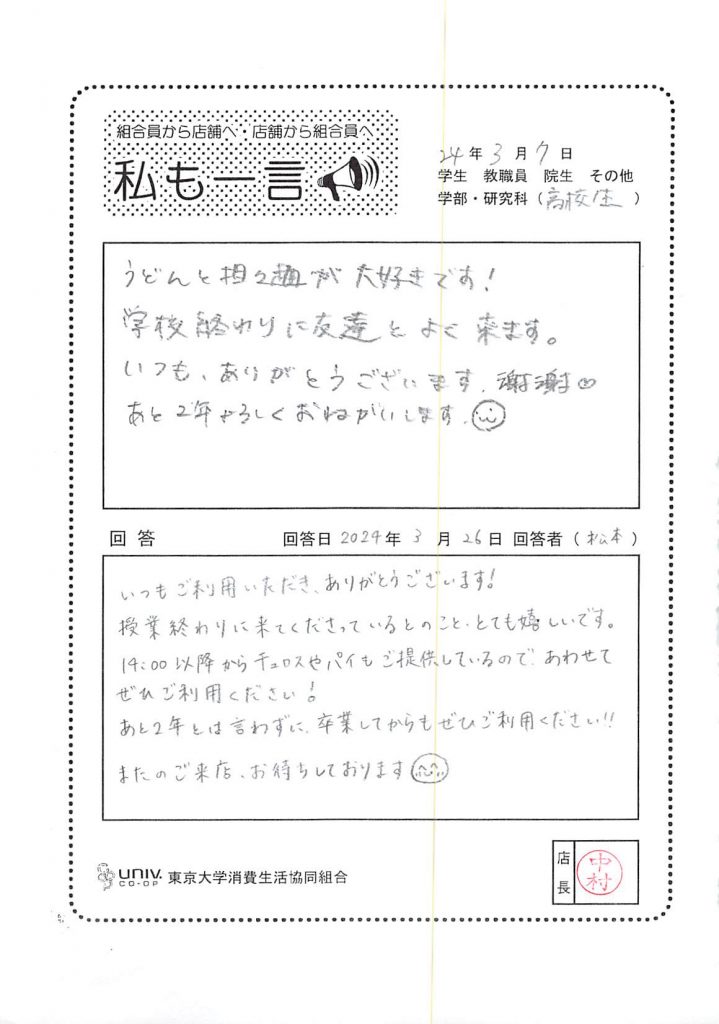 組合員から店舗へ・店舗から組合員へ
私も一言
24年3月7日
学生 教職員 院生 その他
学部・研究科(高校生)
うどんと担々麺が大好きです!
学校終わりに友達とよく来ます。
いつも、ありがとうございます。謝謝
あと2年よろしくおねがいします。
回答 回答日2024年3月26日 回答者(松本)
いつもご利用いただき、ありがとうございます!
授業終わりに来てくださっているとのこと、とても嬉しいです。
14:00以降からチュロスやパイもご提供しているので、あわせて
ぜひご利用ください!
あと2年とは言わずに、卒業してからもぜひご利用ください!!
またのご来店、お待ちしております
UNIV. CO-OP 東京大学消費生活協同組合
店長 中村